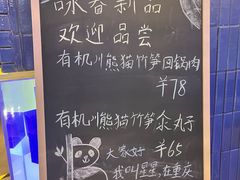 咏春新品
欢迎品尝
有机川熊猫竹笋回锅肉
￥78
有机川熊猫竹笋汆丸子
￥65
大家好
我叫星星,在重庆